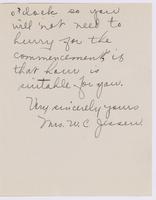 o'clock so you
will not need to
hurry for the
commencement if
that hour is
suitable for you.
Very sincerely yours
Mrs. W. C. Jessen.